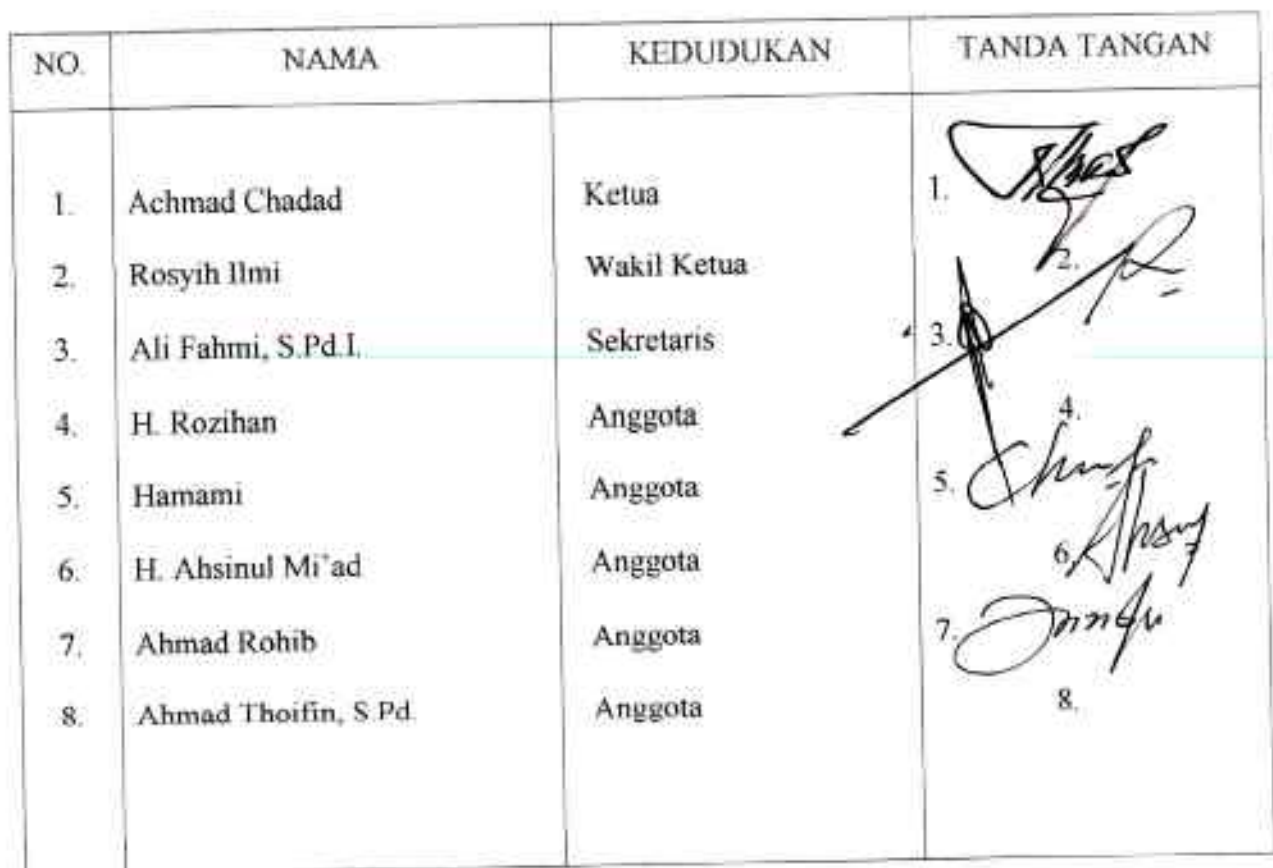 NO. NAMA KEDUDUKAN TANDA TANGAN
1. Achmad Chadad Ketua 1.
2. Rosyih Ilmi Wakil Ketua 2.
3. Ali Fahmi, S.Pd.I. Sekretaris 3.
4. H. Rozihan Anggota 4.
5. Hamami Anggota 5.
6. H. Ahsinul Mi'ad Anggota 6.
7. Ahmad Rohib Anggota 7.
8. Ahmad Thoifin, S.Pd. Anggota 8.